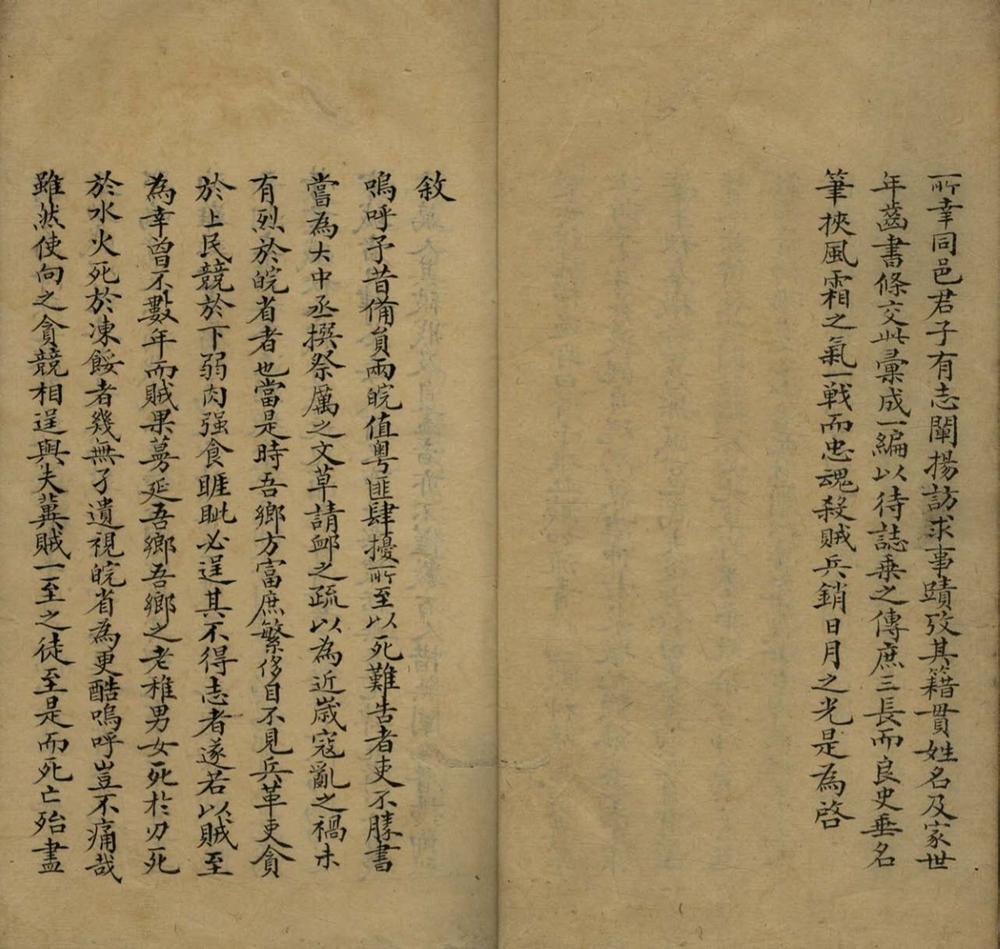 所幸同邑君子有志闡揚訪求事蹟攷其籍貫姓名及家世
年齒書條交此彙成一編以待誌乗之傳庶三長而良史垂名
筆挾風霜之氣一戦而忠魂殺賊兵銷日月之光是為啓
敘
嗚呼予昔備員兩皖值粤匪肆擾所至以死難告者吏不勝書
嘗為大中丞撰祭厲之文草請䘏之疏以為近歲寇亂之禍未
有烈於皖省者也當是時吾鄉方富庶繁侈目不見兵革吏貪
於上民競於下弱肉强食睚眦必逞其不得志者遂若以賊至
為幸曾不數年而賊果蔓延吾鄉吾鄉之老稚男女死於刃死
於水火死於凍餒者幾無孑遺視皖省為更酷嗚呼豈不痛哉
雖然使向之貪競相逞與夫冀賊一至之徒至是而死亡殆盡